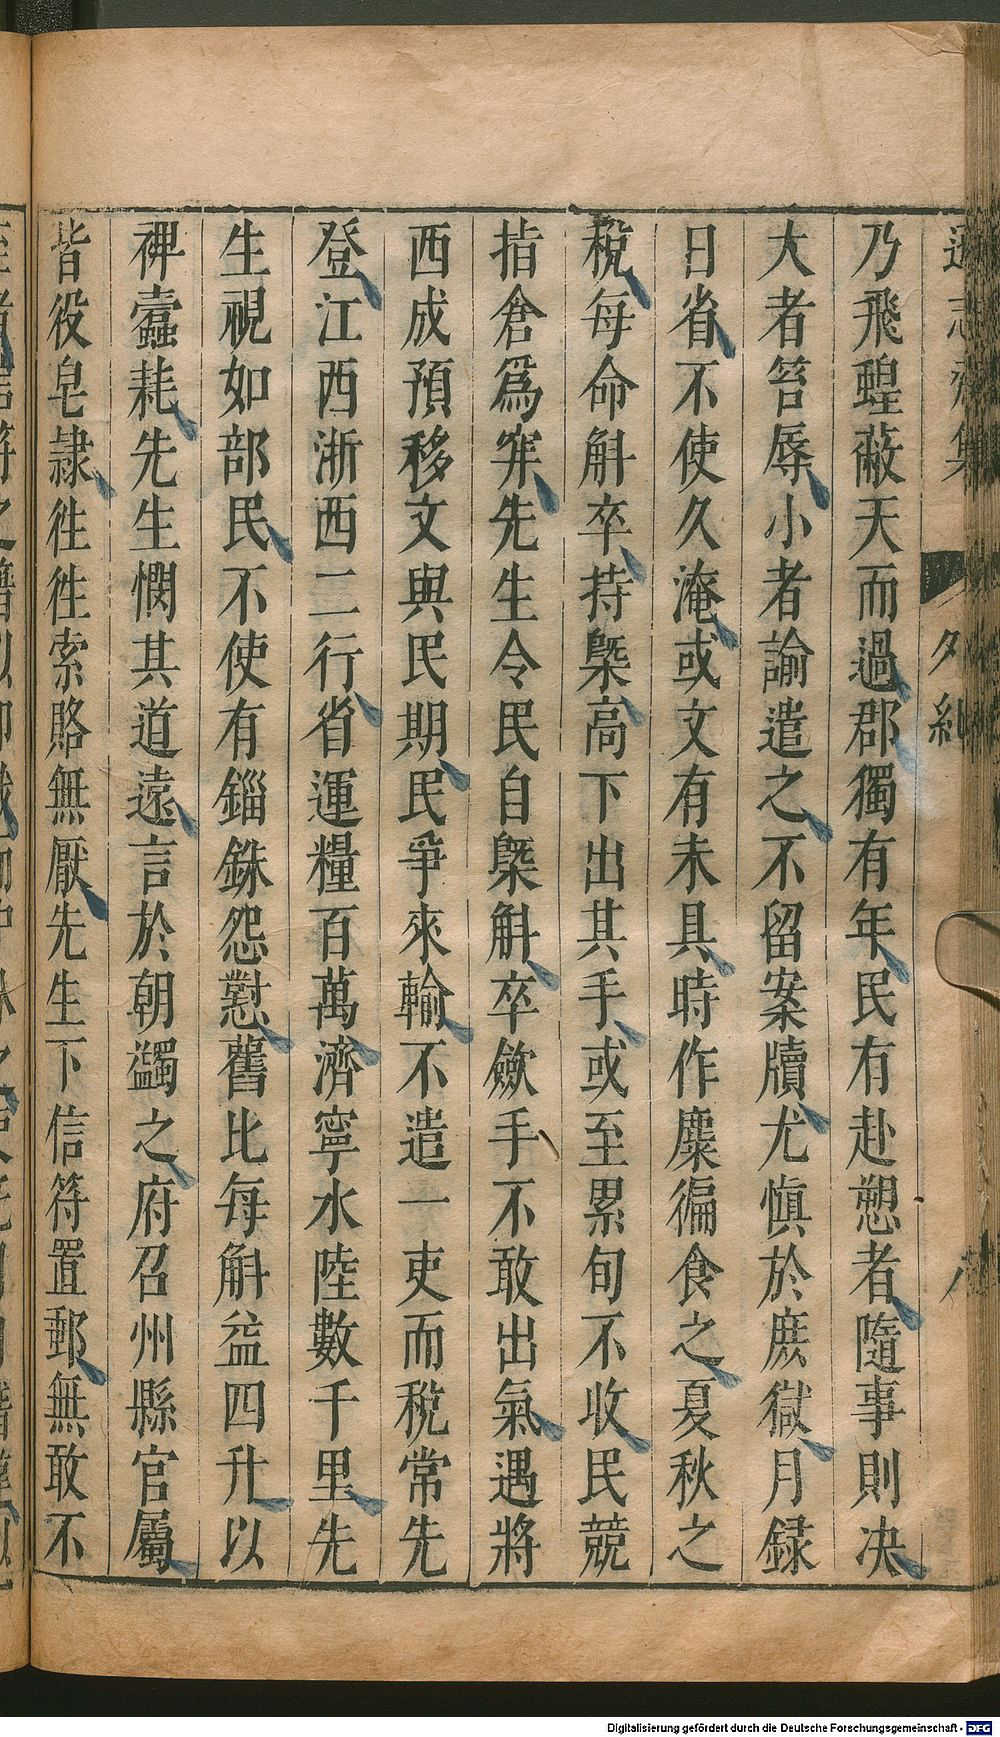 乃飛蝗蔽天而過郡獨有年民有赴愬者隨事則决
大者笞辱小者諭遣之不留案牘尤慎於庶獄月録
日省不使久淹或文有未具時作麋徧食之夏秋之
稅每命斛卒持槩高下出其手或至累旬不收民競
指倉爲穽先生令民自槩斛卒斂手不敢出氣遇將
西成預移文與民期民爭來輸不遣一吏而稅常先
登江西浙西二行省運糧百萬濟寧水陸數千里先
生視如部民不使有錙銖怨懟舊比每斛益四升以
裨蠧耗先生憫其道遠言於朝蠲之府召州縣官屬
皆役皂隷徃徃索賂無厭先生下信符置郵無敢不
Digitalisierung gefördert durch die Deutsche Forschungsgemeinschaft - DFG